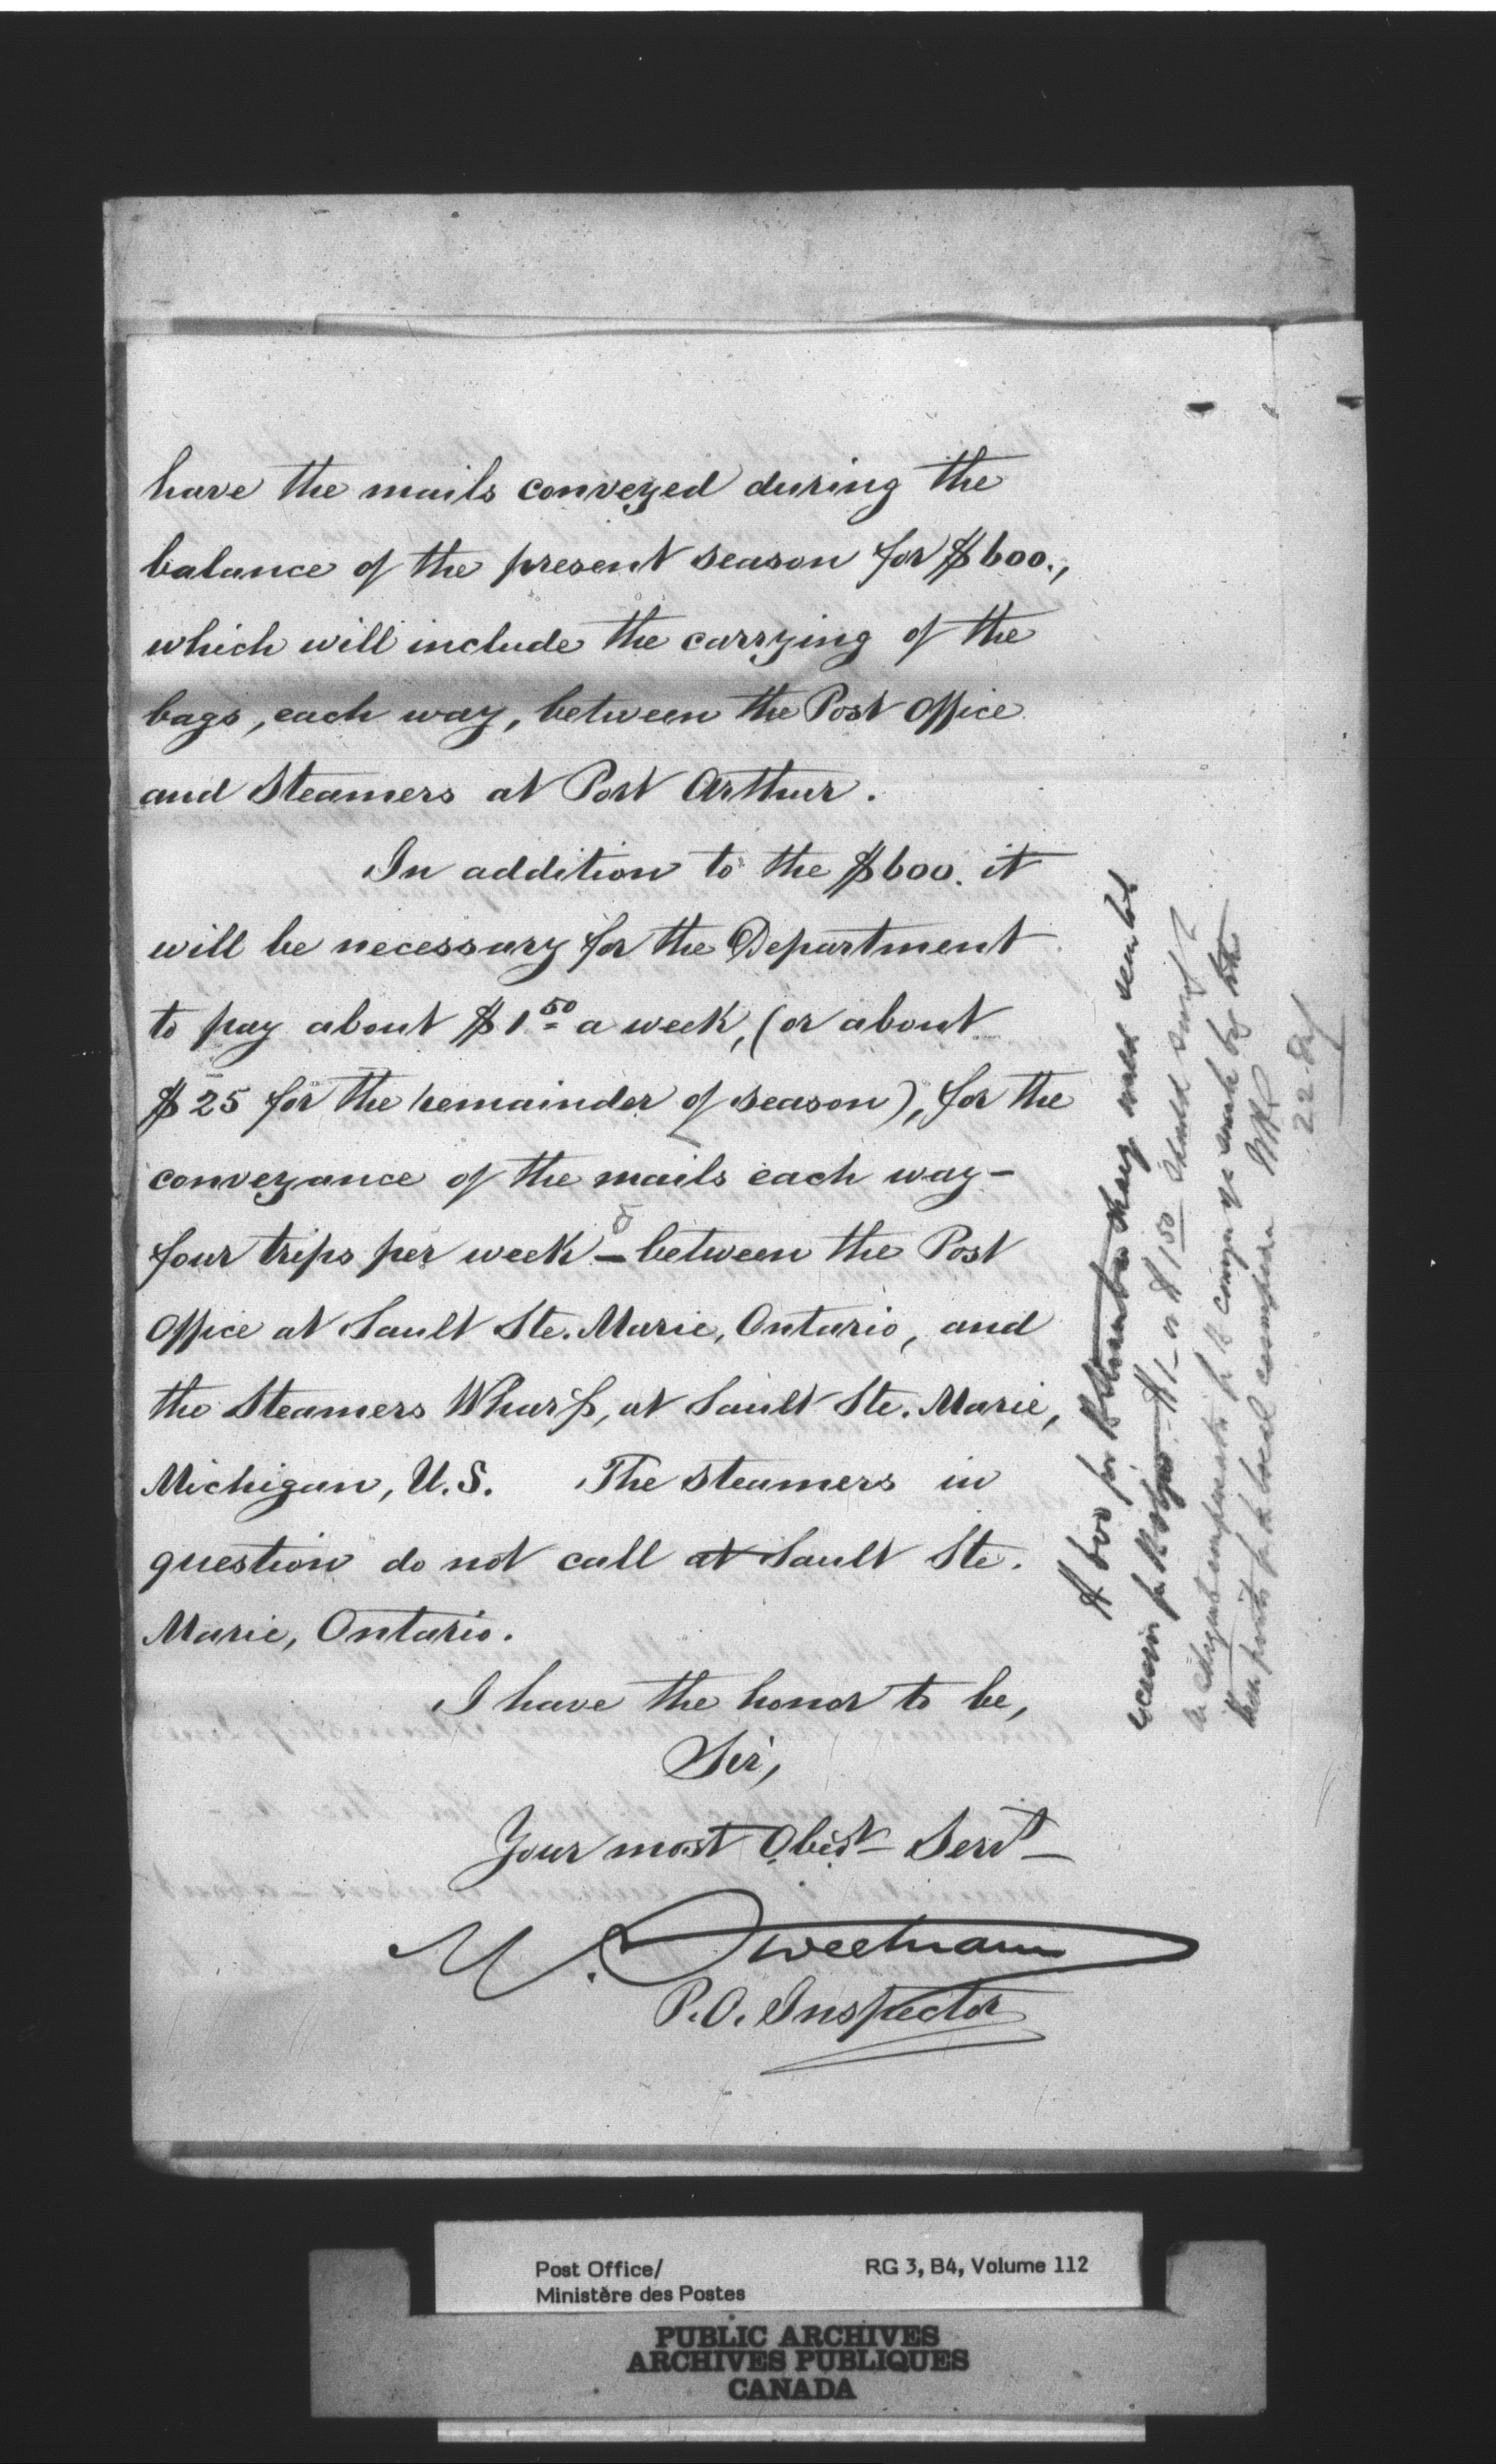 have the mails conveyed during the
balance of the present season for $600.,
which will include the carrying of the
bags, each way, between the Post Office
and Steamers at Port Arthur.
In addition to the $600. it
will be necessary for the Department
to pay about $1.50 a week, (or about
$25 for the remainder of season), for the
conveyance of the mails each way—
four trips per week — between the Post
Office at Sault Ste. Marie, Ontario, and
the Steamers Wharf, at Sault Ste. Marie,
Michigan, U.S. The steamers in
question do not call at Sault Ste.
Marie, Ontario.
I have the honor to be,
Sir,
Your most Obedt Servt
M. Sweetnam
P.O. Inspector
$600 for
$1 — or $1.50 should
22
Post Office/ RG 3, B4, Volume 112
Ministère des Postes
PUBLIC ARCHIVES
ARCHIVES PUBLIQUES
CANADA